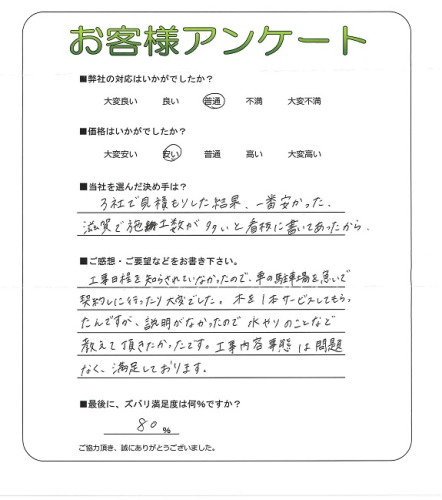 お客様アンケート
■弊社の対応はいかがでしたか?
大変良い 良い 普通 不満 大変不満
■価格はいかがでしたか?
大変安い 安い 普通 高い 大変高い
■当社を選んだ決め手は?
3社で見積もりした結果、一番安かった。
滋賀で施工数が多いと看板に書いてあったから。
■ご感想・ご要望などをお書き下さい。
工事日程を知らされていなかったので、車の駐車場を急いで
契約しに行ったり大変でした。木を1本サービスしてもらっ
たんですが、説明がなかったので水やりのことなど
教えて頂きたかったです。工事内容事態は問題
なく、満足しております。
■最後に、ズバリ満足度は何%ですか?
80%
ご協力頂き、誠にありがとうございました。